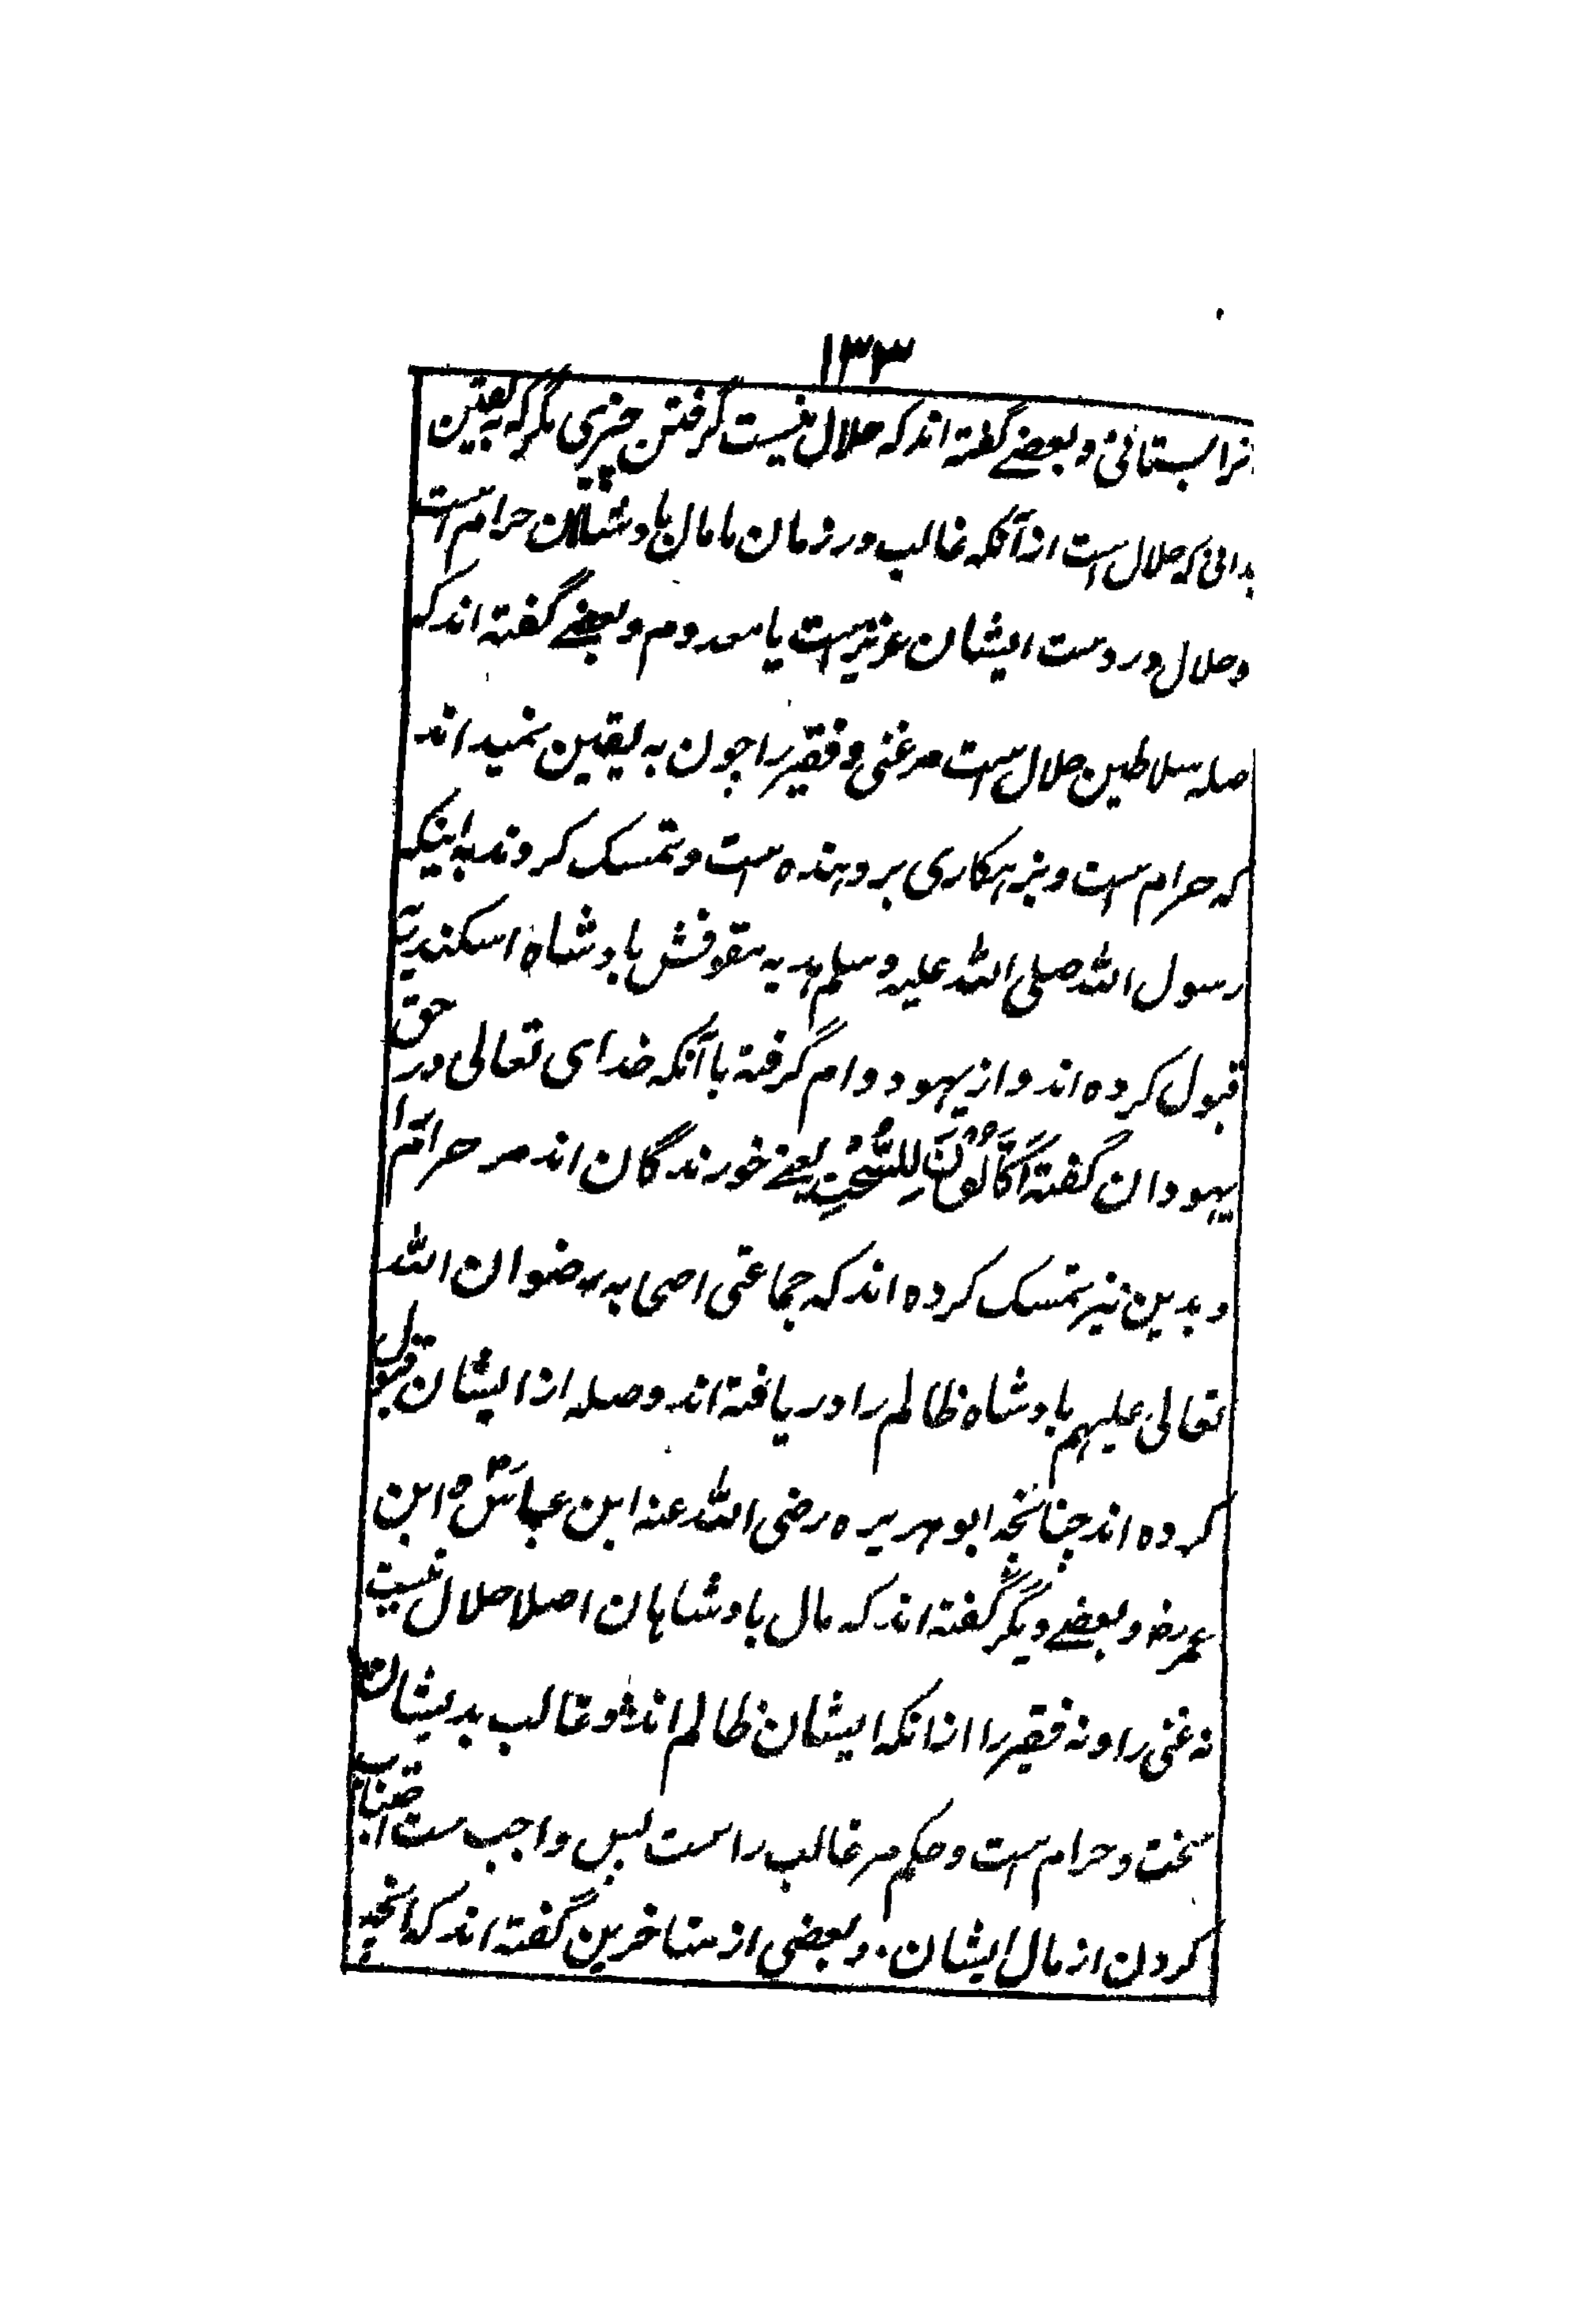 ۱۳۳
بستانی و بعضے گفته اند که حلال نیست گرفتن چیزی مگر که به یقین
بدانی که حلال است از آنکه غالب در زمان ما مال بادشاهان حرام است
و حلال در دست ایشان عزیز است یا معدوم و بعضے گفته اند که
صله سلاطین حلال است مر غنی و فقیر را چون به یقین نمیداند
که حرام است و بزهکاری بر دهنده است و تمسک کردند به اینکه
رسول الله صلی الله علیه وسلم هدیه مقوقش بادشاه اسکندریه
قبول کرده اند و از یهود وام گرفته با آنکه خدای تعالی در حق
یهودان گفته اَكَّالُوْنَ لِلسُّحْتِ یعنے خورندگان اند مر حرام را
و بدین نیز تمسک کرده اند که جماعتی اصحابه رضوان الله
تعالی علیهم بادشاه ظالم را دریافته اند و صله از ایشان قبول
کرده اند چنانچه ابوهریره رضی الله عنه ابن عباس ابن
عمر رض و بعضے دیگر گفته اند که مال بادشاهان اصلا حلال نیست
نه غنی را و نه فقیر را از انکه ایشان ظالم اند و غالب بدیشان
سخت و حرام است و حکم مر غالب راست پس واجب ست اجتناب
کردن از مال ایشان. و بعضی از متاخرین گفته اند که انچه